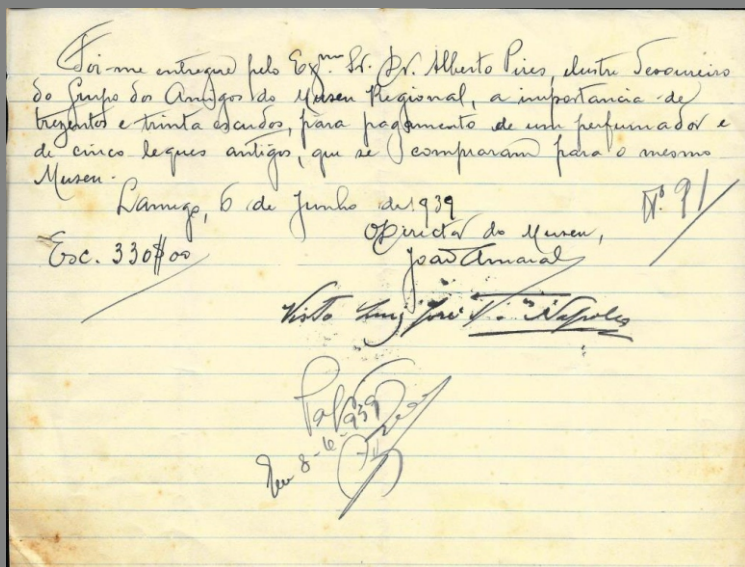 Foi-me entregue pelo Exmo. Sr. Dr. Alberto Pires, ilustre Tesoureiro
do Grupo dos Amigos do Museu Regional, a importancia de
trezentos e trinta escudos, para pagamento de um perfumador e
de cinco leques antigos, que se compraram para o mesmo
Museu.
Lamego, 6 de Junho de 1939
Nº 91
O Director do Museu,
Esc. 330$00
João Amaral
Visto Luiz José Napoles
Em 8-6-939